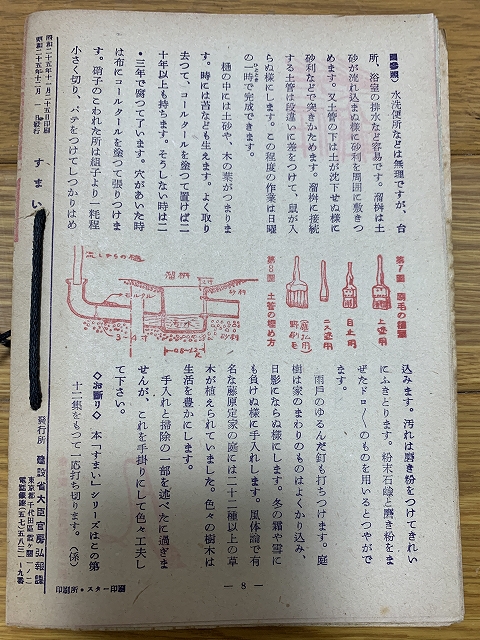 圖參照) 水洗便所などは無理ですが、台
所、浴室の排水など容易です。溜桝は土
砂が流れ込まぬ樣に砂利を周囲に敷きつ
めます。又土管の下は土が沈下せぬ樣に
砂利などで突きかためます。溜桝に接続
する土管は段違いに差をつけて、鼠が入
らぬ樣にします。この程度の作業は日曜
の一時で完成できます。
樋の中には土砂や、木の葉がつまりま
す。時には苔なども生えます。よく取り
去つて、コールタールを塗つて置けば二
十年以上も持ちます。そうしない時は二
・三年で腐つて了います。穴があいた時
は布にコールタールを塗つて張りつけま
す。硝子のこわれた所は組子より一粍程
小さく切り、パテをつけてしつかりはめ
第7圖 刷毛の種類
上塗用
目土用
ニス塗用
糊用
第8圖 土管の埋め方
流しからの樋
溜桝
モルタル
砂利
3－4寸
込みます。汚れは磨き粉をつけてきれい
にふきとります。粉末石鹸と磨き粉をま
ぜたドロ〱のものを用いるとつやがで
ます。
雨戸のゆるんだ釘も打ちつけます。庭
樹は家のまわりのものはよくかり込み、
日影にならぬ樣にします。冬の霜や雪に
も負けぬ樣に手入れします。風体論で有
名な藤原定家の庭には二十二種以上の草
木が植えられていました。色々の樹木は
生活を豊かにします。
手入れと掃除の一部を述べたに過ぎま
せんが、これを手掛りにして色々工夫し
て下さい。
◇お断り◇ 本「すまい」シリーズはこの第
十二集をもつて一応打ち切ります。(係)
— 8 —
昭和二十五年十一月二十五日印刷
昭和二十五年十二月 一 日発行
すまい
発行所 建設省大臣官房弘報課
東京都千代田區霞ヶ關一ノ二
電話銀座(五七)五八三一－九番
印刷所・スター印刷